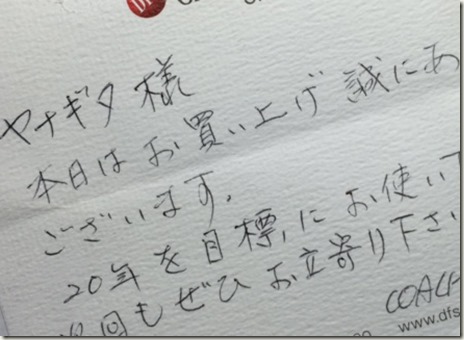 ヤナギタ 様
本日は お買い上げ 誠にあ
ございます。
20年を目標にお使いて
次回もぜひ お立寄り下さい
COACH
www.dfs